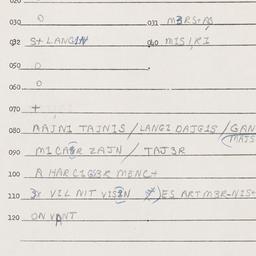 020
030 O 031 M3RS+AS
032 S+ LANGIN 040 MIS/RI
050 O
060 O
070 +
080 MAJNI TAJNIS / LANGI DAJGIS / GAN
MAJS
090 MICA8R ZAJN / TAJ3R
100 A HARCIG3R MENC+
110 3R VIL NIT VIS3N ES ART M3R-NIS+
120 ON VANT